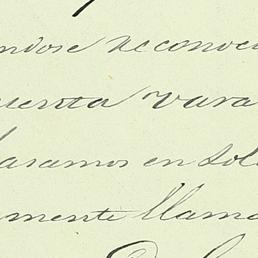 ndose reconoci
uenta vara
saramos en sole
mente llama